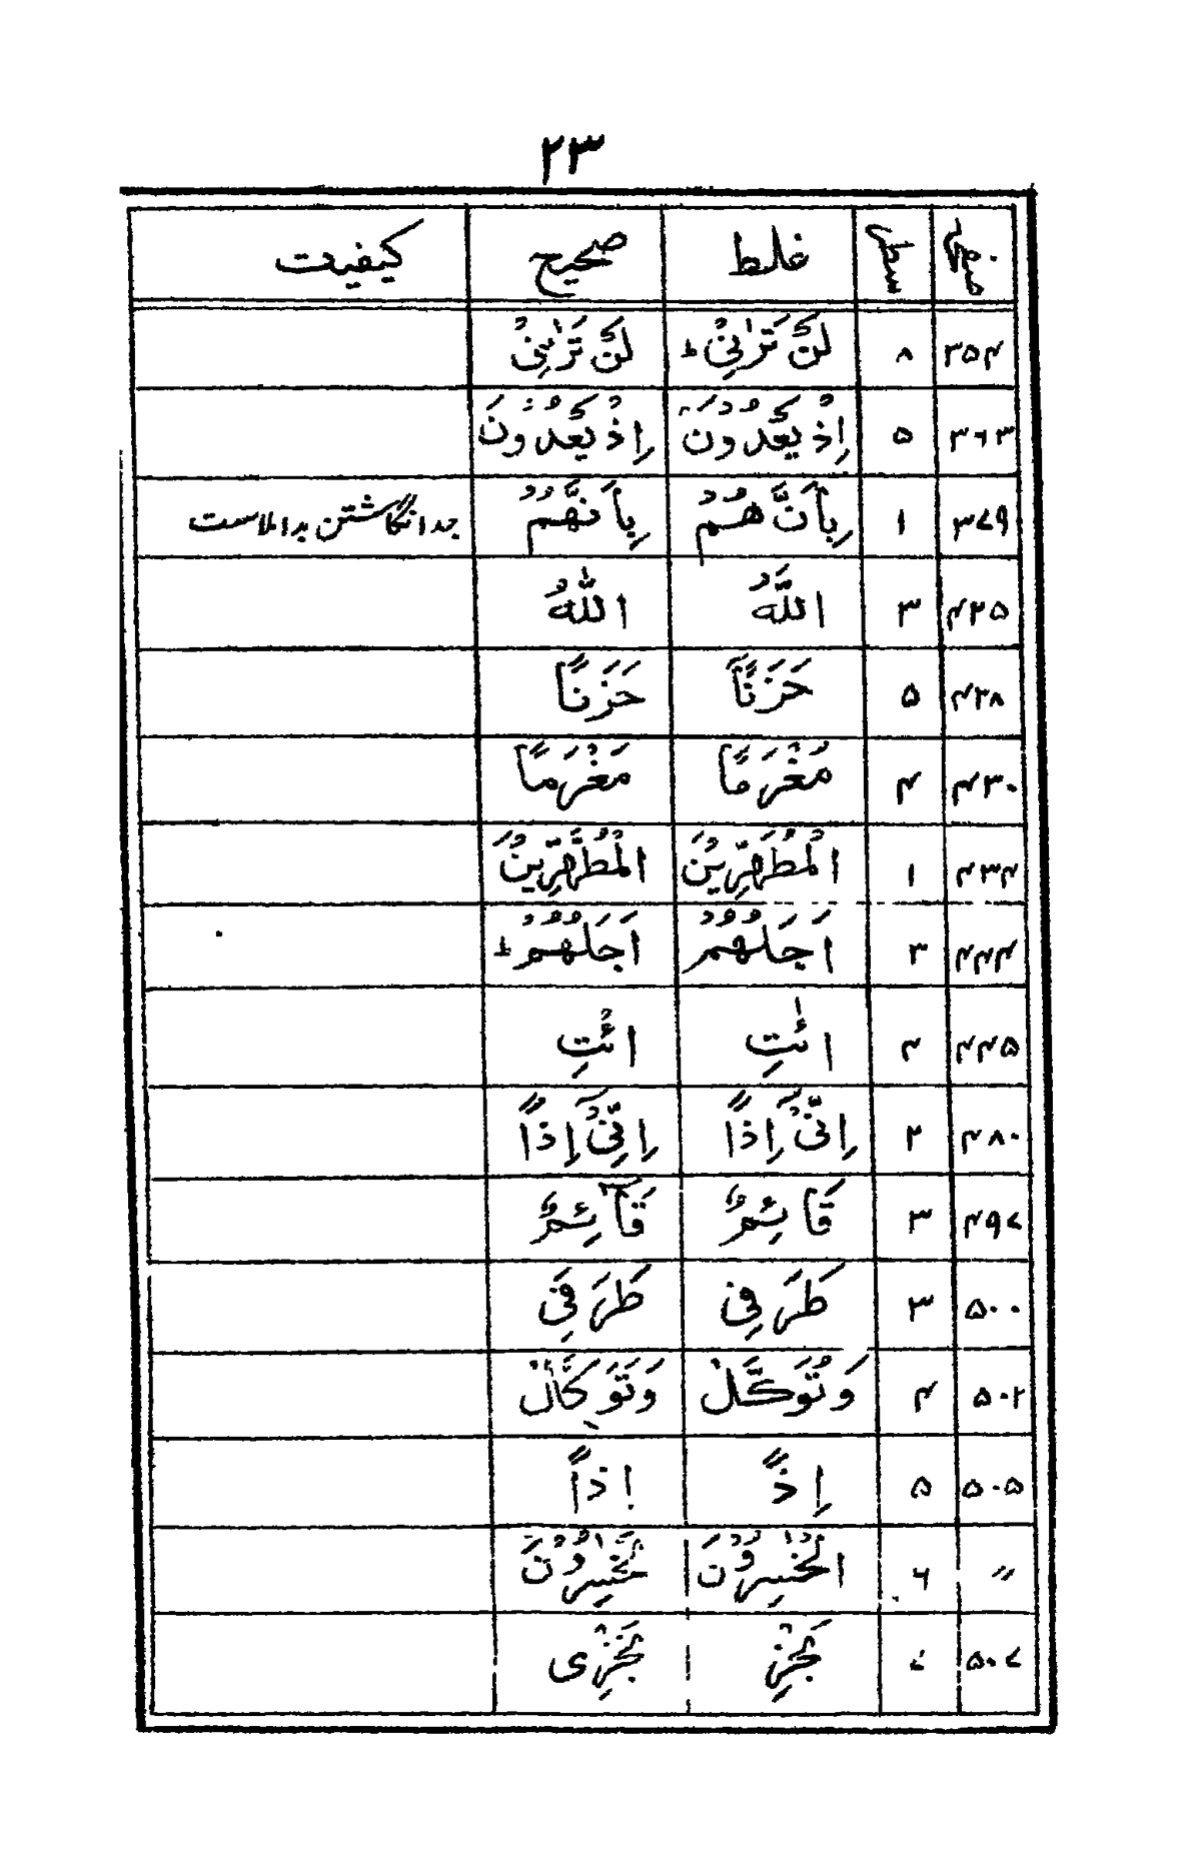 ۲۳
صفحہ سطر غلط صحیح کیفیت
۳۵۴ ۸ لَنْ تَرٰنِیْ ط لَنْ تَرٰىنِیْ
۳۶۳ ۵ اِذْ یَعْدُوْنَ اِذْ یَعْدُوْنَ
۳۷۹ ۱ بِاَنَّ هُمْ بِاَنَّهُمْ جدا نگاشتن بد املاست
۴۲۵ ۳ اللَّهُ اللّٰهُ
۴۲۸ ۵ حَزَنًاً حَزَنًا
۴۳۰ ۴ مُغْرَمًا مَغْرَمًا
۴۳۴ ۱ الْمُطَهِّرِیْنَ الْمُطَّهِّرِیْنَ
۴۴۴ ۳ اَجَلُهُمْ اَجَلُهُمْ ط
۴۴۵ ۴ ائٰتِ ائْتِ
۴۸۰ ۲ اِنِّیْۤ اِذًا اِنِّیْۤ اِذًا
۴۹۷ ۳ قَائِمٌ قَآئِمٌ
۵۰۰ ۳ طَرَفِی طَرَفَیِ
۵۰۲ ۴ وَتُوَكَّلْ وَتَوَكَّلْ
۵۰۵ ۵ اِذً اِذاً
〃 ۶ الْخٰسِرُوْنَ لَّخٰسِرُوْنَ
۵۰۷ ۷ نَجْزِ نَجْزِی